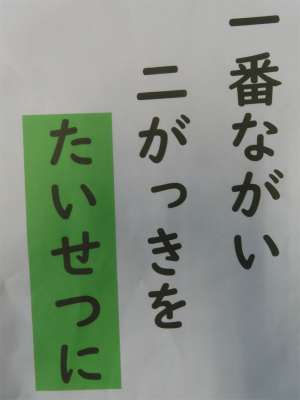 一番ながい
二がっきを
たいせつに